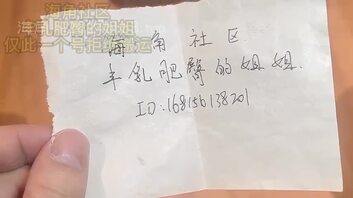 海角社区
丰乳肥臀的姐姐
仅此一个号拒绝搬运
海角社区
丰乳肥臀的姐姐.
ID:168156138201